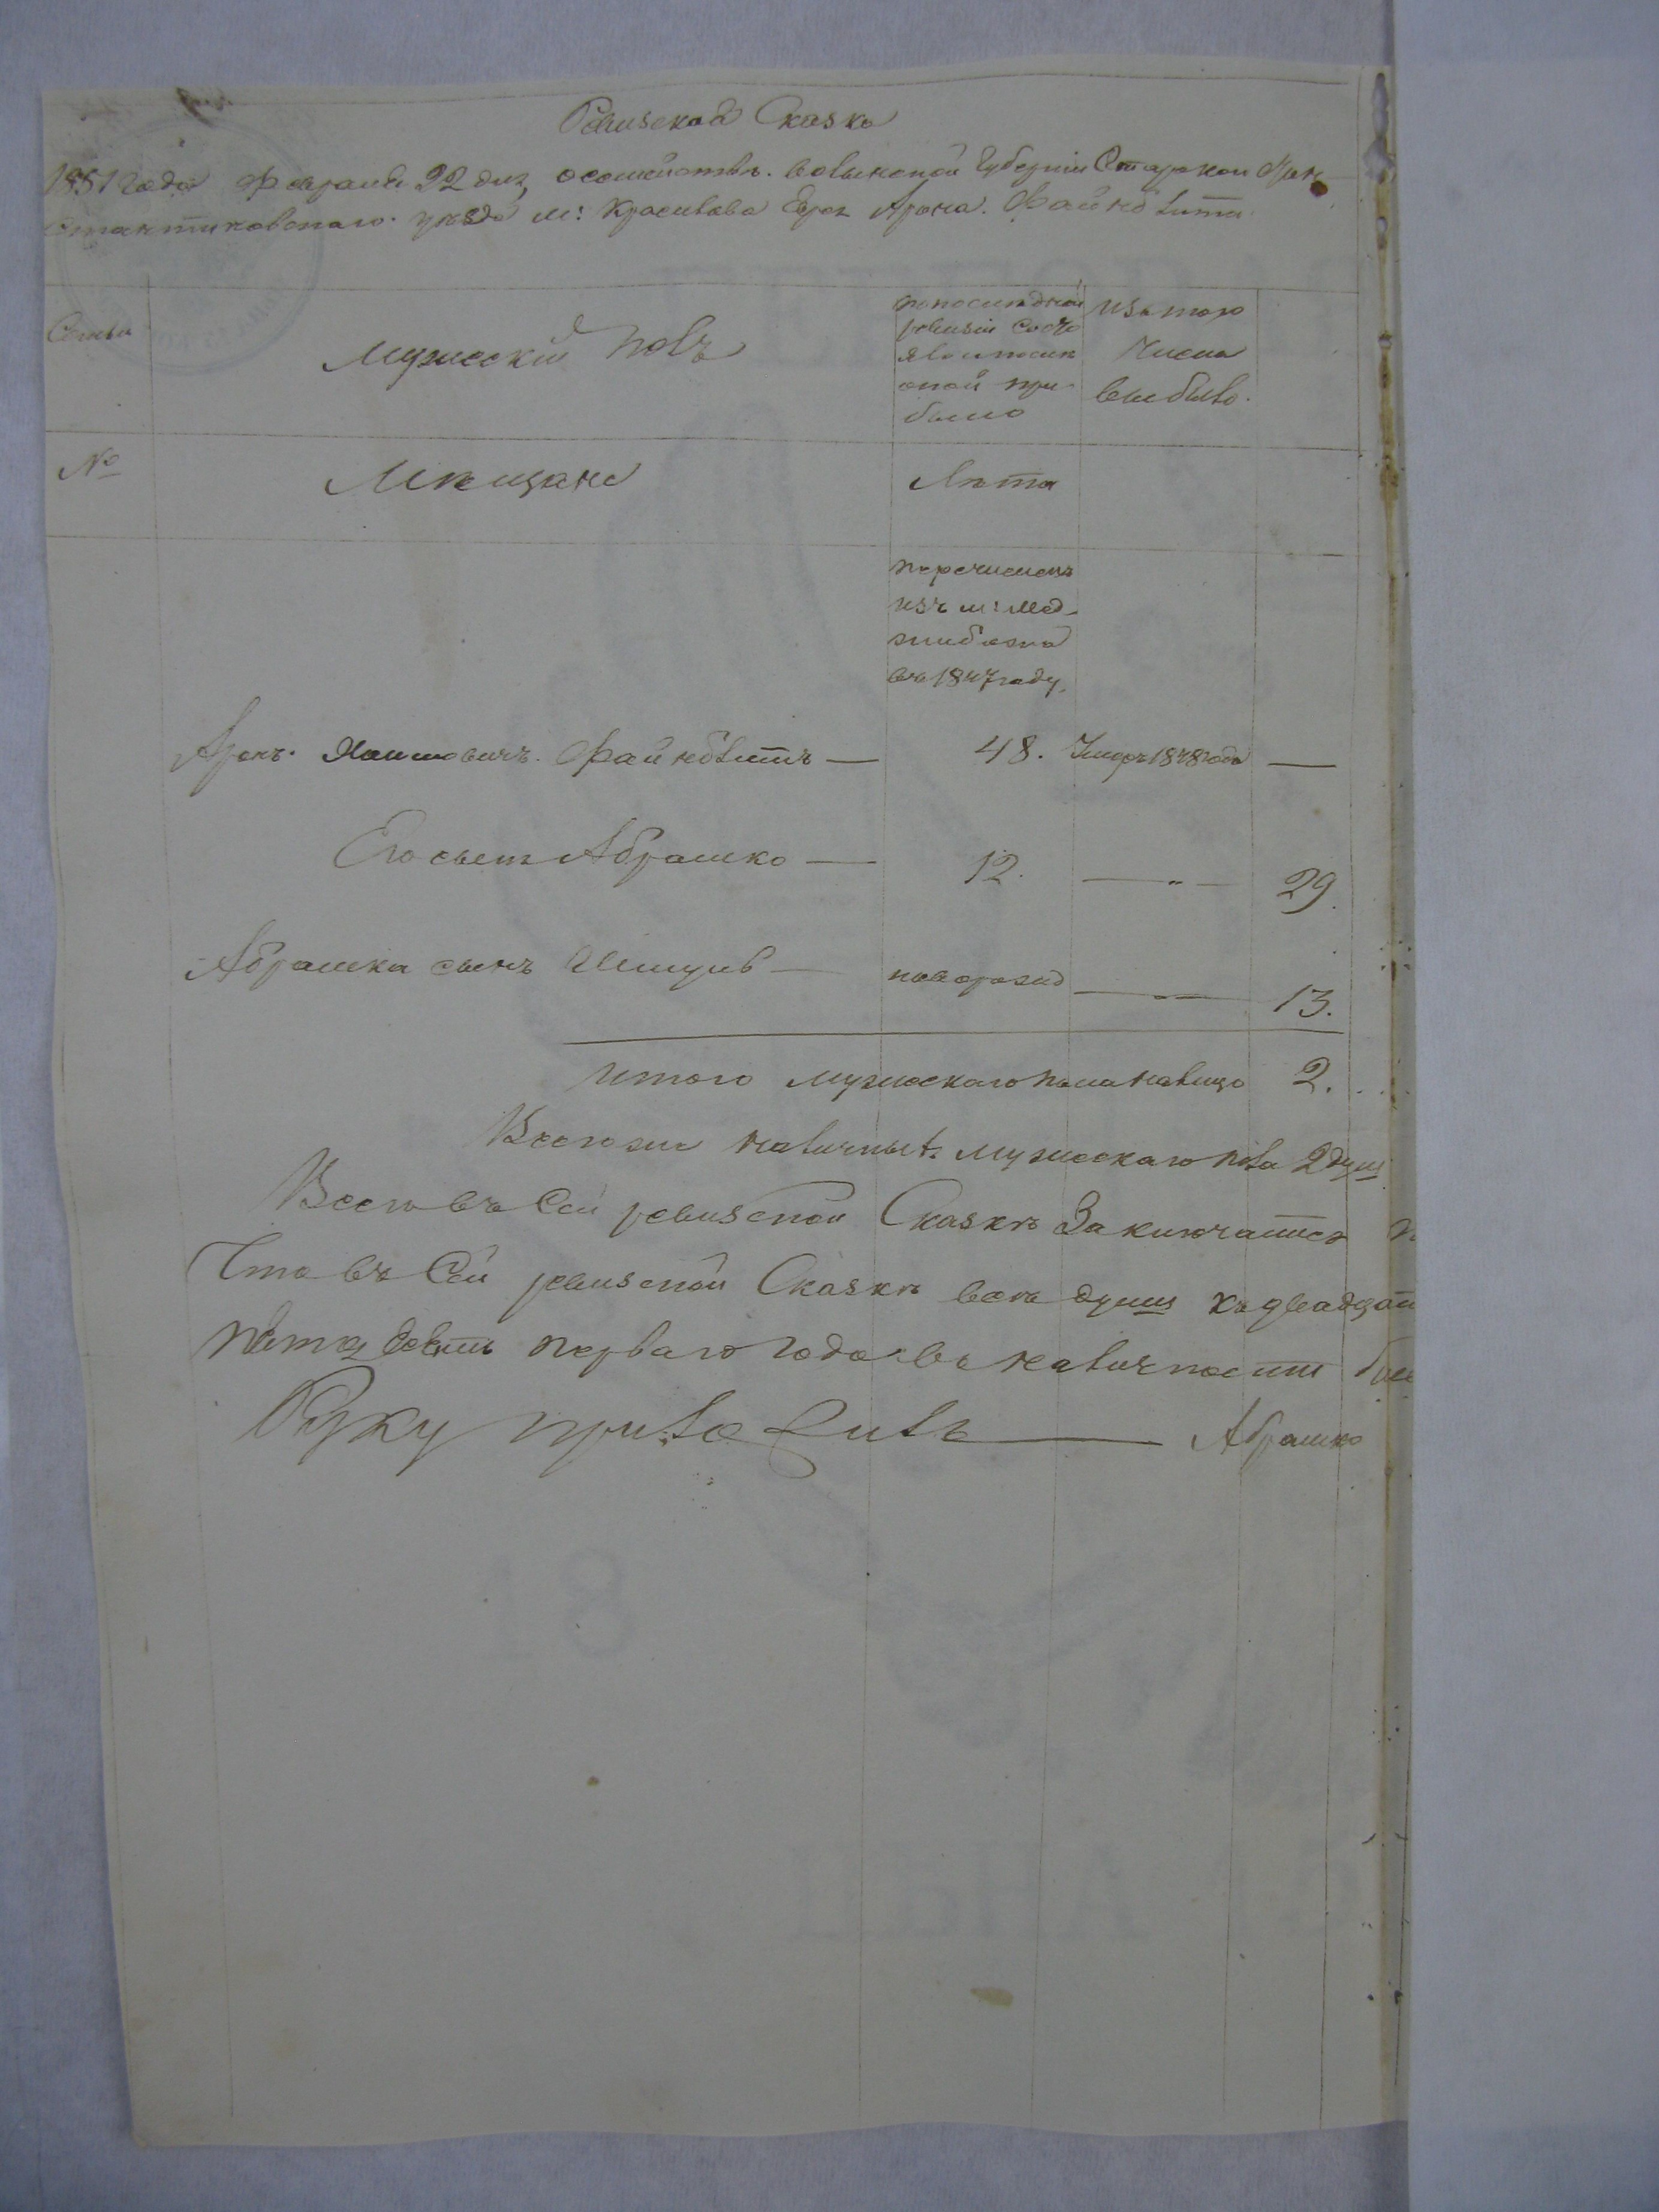 Ревизская Сказка
1851 года Февраля 22 дня, о семействъ. Волынской Губерніи Старокон
стантиновскаго. уѣзда м: Красилова Евре Арона. Файнблита
Семьи
Мужескій полъ
по последней
ревизіи состо
яло и после
оной при
было
Изъ того
Числа
выбыло.
№
Мѣщане
Лѣта
перечислены
изъ м: Мед
жибожа
въ 1847 году,
Аронъ. Хаимовичъ. Файнблитъ — 48. Умеръ 1848 года —
Его сынъ Абрашко — 12. — " — 29.
Абрашка сынъ — новорожд — " — 13.
Итого мужескаго пола налицо 2.
Всего же наличныхъ мужескаго пола 2 душ
Всего въ Сей ревизской Сказкѣ Заключается
Что въ Сей ревизской Сказкѣ всѣ души къ двадцат
перваго года въ наличности
Руку приложилъ — Абрашко